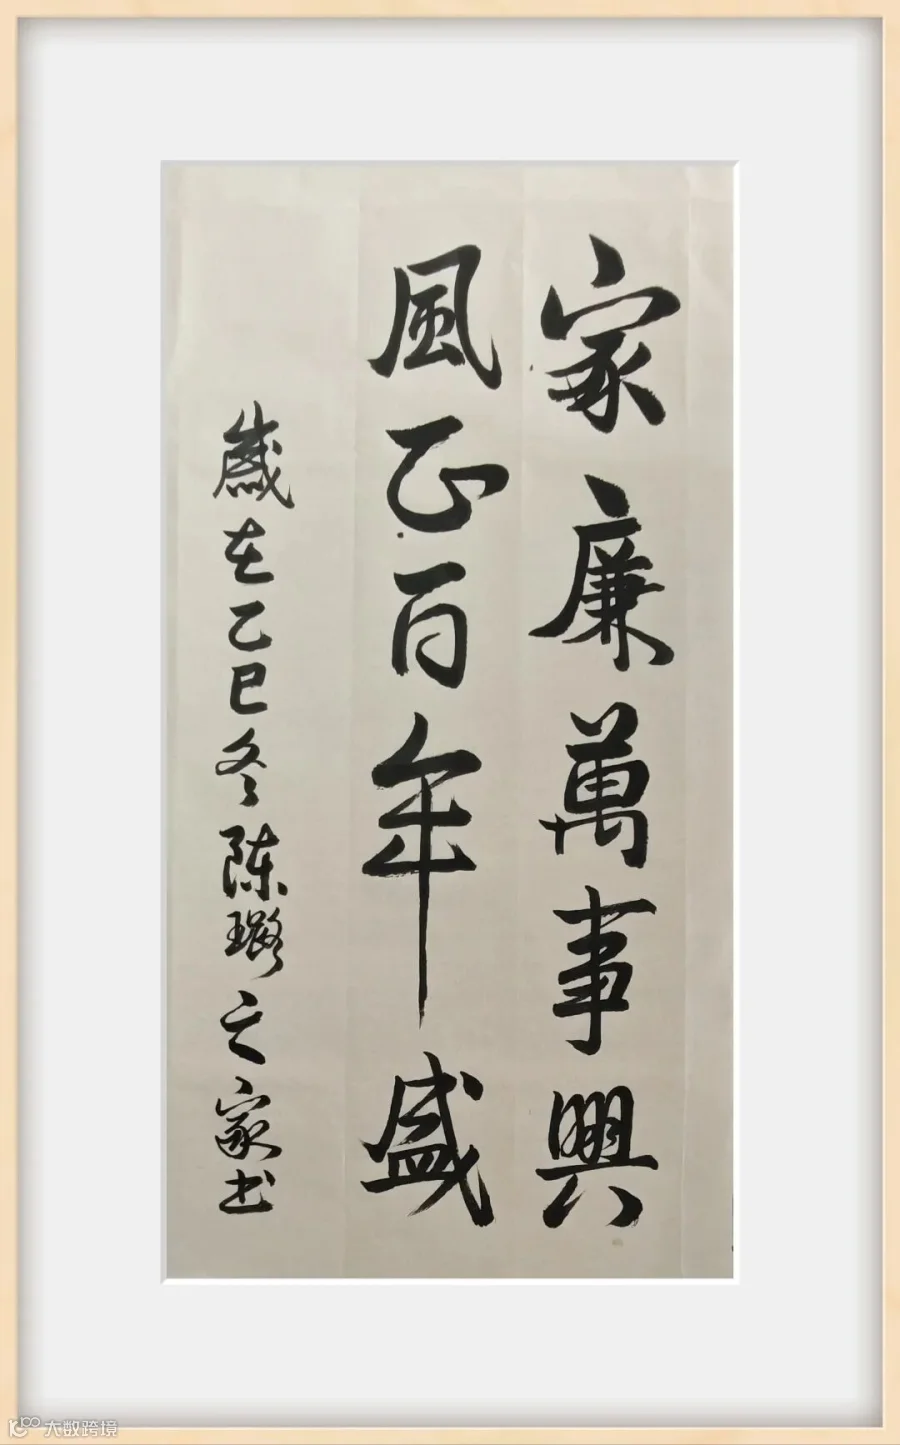 家廉萬事興
風正百年盛
歲在乙巳冬陈璐之家书
大数跨境